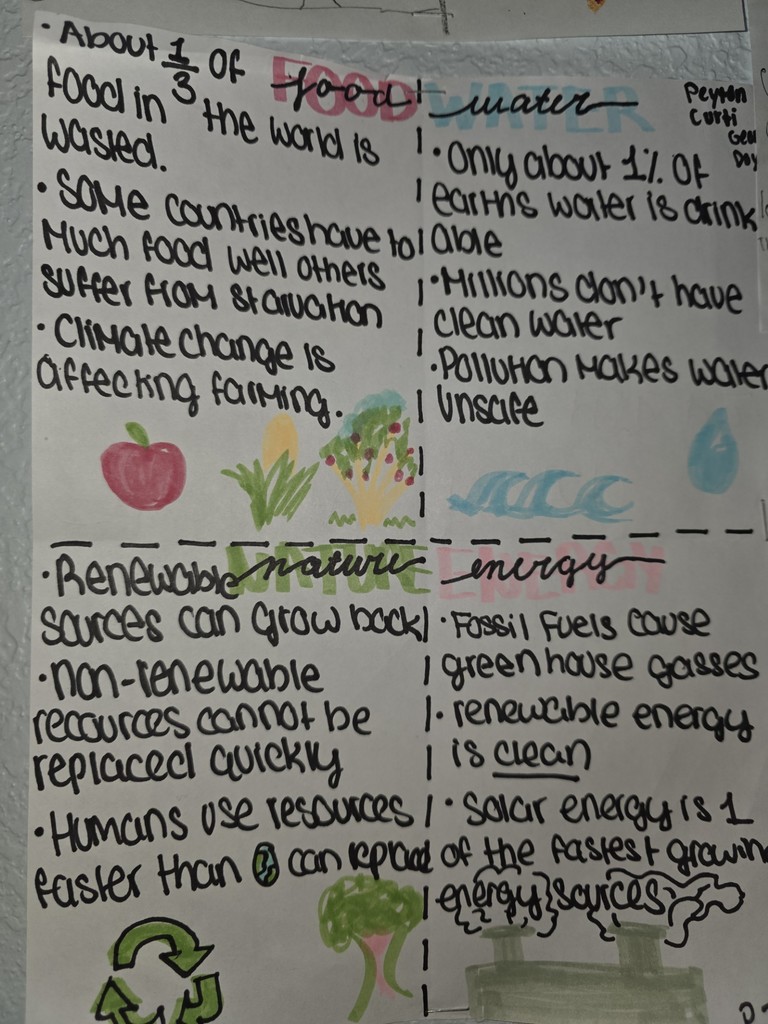 FOOD
food
• About 1/3 of
food in the world is
wasted.
• Some countries have to
much food well others
suffer from starvation
• Climate change is
affecting farming.
WATER
water
Peyton
Curti
Geo
Day
• Only about 1% of
earths water is drink
able
• Millions don't have
clean water
• Pollution makes water
unsafe
NATURE
nature
• Renewable
sources can grow back
• non-renewable
recources cannot be
replaced quickly
• Humans use resources
faster than can replace
ENERGY
energy
• Fossil Fuels cause
greenhouse gasses
• renewable energy
is clean
• Solar energy is 1
of the fastest growin
energy sources